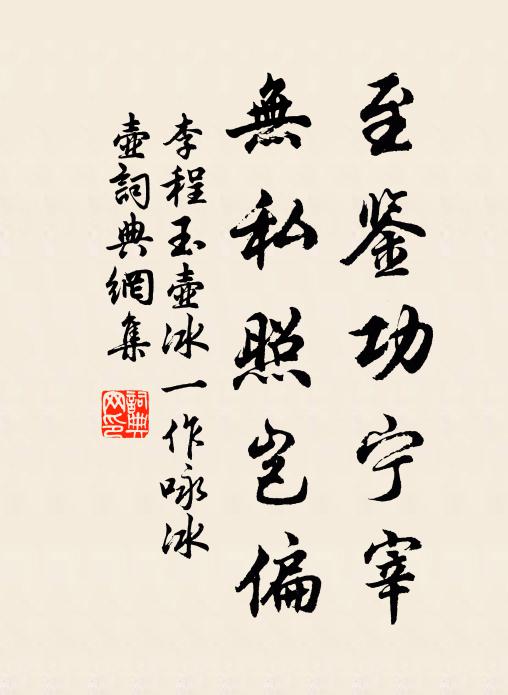 至鉴功宁宰
無私照岂偏
李程玉壺冰一作咏冰
壺詞典網集
詞典网印